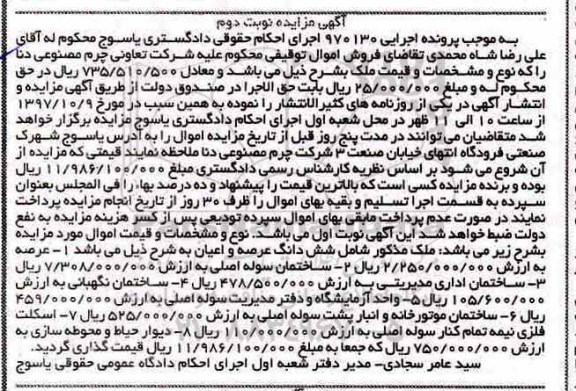 آگهی مزایده نوبت دوم
به موجب پرونده اجرایی ۹۷۰۱۳۰ اجرای احکام حقوقی دادگستری یاسوج محکوم له آقای
علی رضا شاه محمدی تقاضای فروش اموال توقیفی محکوم علیه شرکت تعاونی چرم مصنوعی دنا
را که نوع و مشخصات و قیمت ملک بشرح ذیل می باشد و معادل ۷۳۵/۵۱۰/۵۰۰ ریال در حق
محکوم له و مبلغ ۲۵/۰۰۰/۰۰۰ ریال بابت حق الاجرا در صندوق دولت از طریق آگهی مزایده و
انتشار آگهی در یکی از روزنامه های کثیرالانتشار را نموده به همین سبب در مورخ ۱۳۹۷/۱۰/۹
از ساعت ۱۰ الی ۱۱ ظهر در محل شعبه اول اجرای احکام دادگستری یاسوج مزایده برگزار خواهد
شد متقاضیان می توانند در مدت پنج روز قبل از تاریخ مزایده اموال را به آدرس یاسوج شهرک
صنعتی فرودگاه انتهای خیابان صنعت ۳ شرکت چرم مصنوعی دنا ملاحظه نمایند قیمتی که مزایده از
آن شروع می شود بر اساس نظریه کارشناس رسمی دادگستری مبلغ ۱۱/۹۸۶/۱۰۰/۰۰۰ ریال
بوده و برنده مزایده کسی است که بالاترین قیمت را پیشنهاد و ده درصد بهاء را فی المجلس بعنوان
سپرده به قسمت اجرا تسلیم و بقیه بهای اموال را ظرف ۳۰ روز از تاریخ انجام مزایده پرداخت
نمایند در صورت عدم پرداخت مابقی بهای اموال سپرده تودیعی پس از کسر هزینه مزایده به نفع
دولت ضبط خواهد شد این آگهی نوبت اول می باشد. نوع و مشخصات و قیمت اموال مورد مزایده
بشرح زیر می باشد: ملک مذکور شامل شش دانگ عرصه و اعیان به شرح ذیل می باشد ۱- عرصه
به ارزش ۲/۲۵۰/۰۰۰/۰۰۰ ریال ۲- ساختمان سوله اصلی به ارزش ۷/۳۰۸/۰۰۰/۰۰۰ ریال
۳- ساختمان اداری مدیریتی به ارزش ۴۷۸/۵۰۰/۰۰۰ ریال ۴- ساختمان نگهبانی به ارزش
۱۰۵/۶۰۰/۰۰۰ ریال ۵- واحد آزمایشگاه و دفتر مدیریت سوله اصلی به ارزش ۴۵۹/۰۰۰/۰۰۰
ریال ۶- ساختمان موتورخانه و انبار پشت سوله اصلی به ارزش ۵۲۵/۰۰۰/۰۰۰ ریال ۷- اسکلت
فلزی نیمه تمام کنار سوله اصلی به ارزش ۱۱۰/۰۰۰/۰۰۰ ریال ۸- دیوار حیاط و محوطه سازی به
ارزش ۷۵۰/۰۰۰/۰۰۰ ریال که جمعا به مبلغ ۱۱/۹۸۶/۱۰۰/۰۰۰ ریال قیمت گذاری گردید.
سید عامر سجادی- مدیر دفتر شعبه اول اجرای احکام دادگاه عمومی حقوقی یاسوج